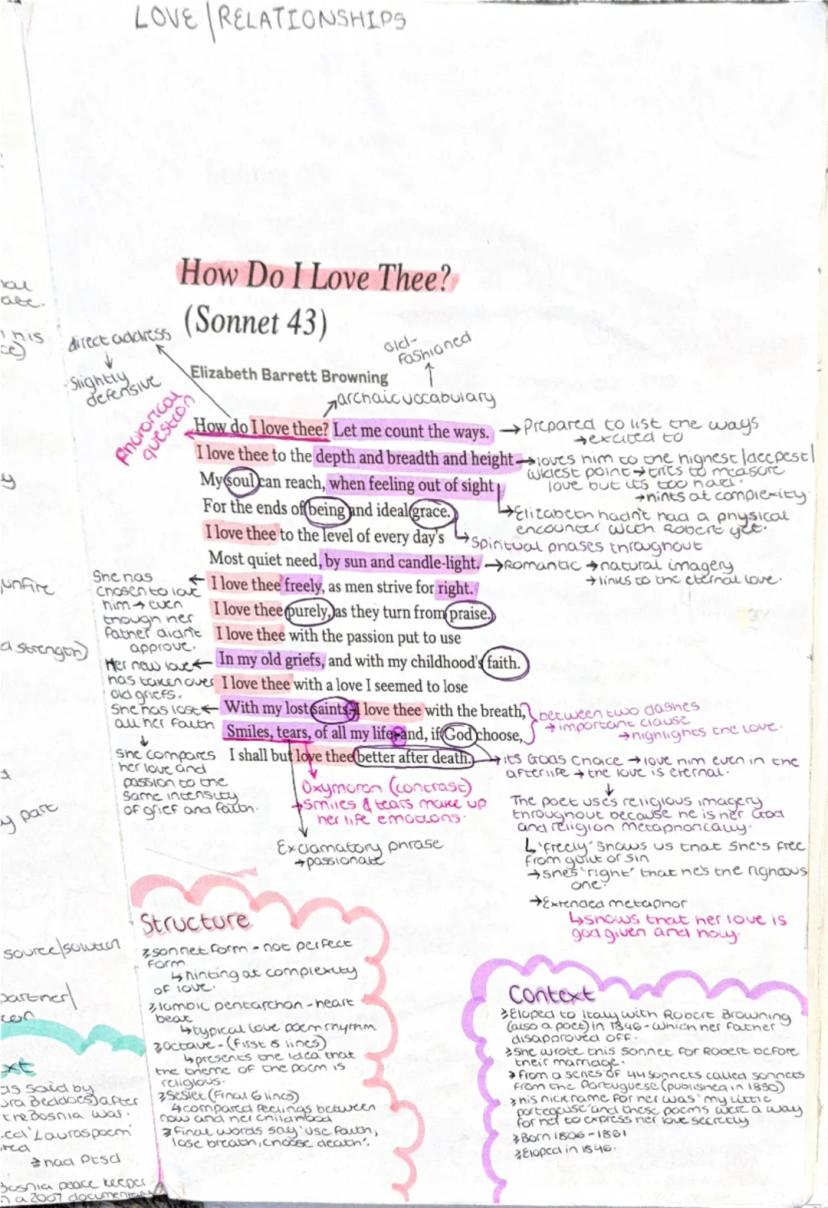 LOVE/RELATIONSHIPS
How Do I Love Thee?
(Sonnet 43)
Elizabeth Barrett Browning
direct address
slightly
defensive
old-
fashioned
archaic vocabulary
Rhetorical
question
How do I love thee? Let me count the ways.
I love thee to the depth and breadth and height
My soul can reach, when feeling out of sight
For the ends of being and ideal grace.
I love thee to the level of every day's
Most quiet need, by sun and candle-light.
I love thee freely, as men strive for right.
I love thee purely, as they turn from praise.
I love thee with the passion put to use
In my old griefs, and with my childhood's faith.
I love thee with a love I seemed to lose
With my lost saints – I love thee with the breath,
Smiles, tears, of all my life – and, if God choose,
I shall but love thee better after death.
Prepared to list the ways
→ excited to
loves him to the highest/deepest/
widest point → tries to measure
love but its too hard.
→ hints at complexity.
Elizabeth hadn't had a physical
encounter with Robert yet.
spiritual phases throughout
Romantic → natural imagery
→ links to the eternal love.
She has
chosen to love
him → even
though her
father didn't
approve.
Her new love
has taken over
old griefs.
She has lost
all her faith
She compares
her love and
passion to the
same intensity
of grief and faith.
between two dashes
→ important clause
→ highlights the love.
its Gods choice → love him even in the
afterlife → the love is eternal.
Oxymoron (contrast)
→ smiles & tears make up
her life emotions.
Exclamatory phrase
→ passionate
The poet uses religious imagery
throughout because he is her God
and religion metaphorically.
↳ 'freely' shows us that she's free
from guilt of sin
→ she's 'right' that he's the righteous
one.
→ Extended metaphor
↳ shows that her love is
god given and holy.
Structure
sonnet form - not perfect
form
↳ hinting at complexity
of love.
Iambic
heart
beat
↳ typical love poem rhythm
Octave - (first 8 lines)
↳ presents the idea that
the theme of the poem is
religious.
Sestet (final 6 lines)
↳ compared feelings between
now and her childhood
Final words say 'use faith,
lose breath, choose death'.
Context
Eloped to Italy with Robert Browning
(also a poet) in 1846 - which her father
disapproved off.
She wrote this sonnet for Robert before
their marriage.
From a series of 44 sonnets called sonnets
from the Portuguese (published in 1850)
his nickname for her was 'my little
and these poems were a way
for her to express her love secretly
Born 1806 - 1861
Eloped in 1846.
unfire
a strength)
y part
source/solution
partner/
xt
as said by
after
the Bosnia war.
'Lauras poem'
had Ptsd
Bosnia peace keeper
a 2007 documentary